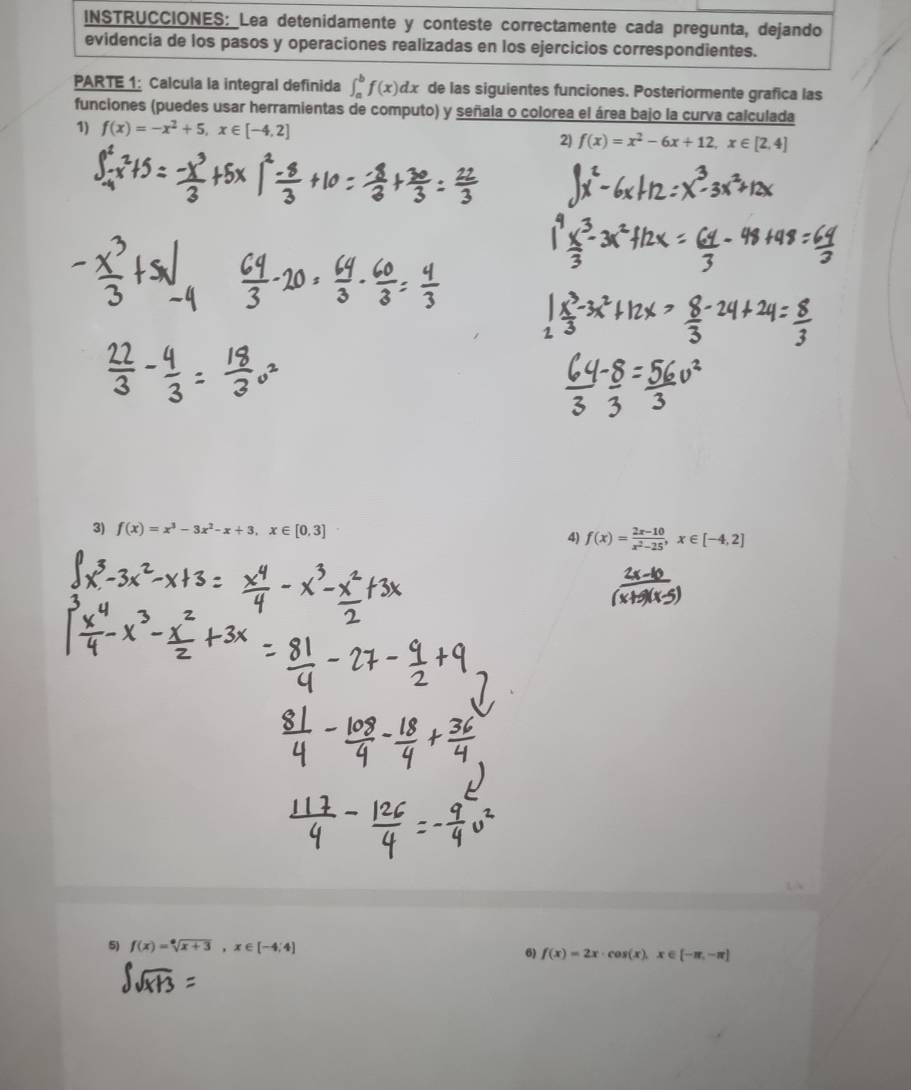 INSTRUCCIONES: Lea detenidamente y conteste correctamente cada pregunta, dejando
evidencia de los pasos y operaciones realizadas en los ejercicios correspondientes.
PARTE 1: Calcula la integral definida ∫_a^b f(x)dx de las siguientes funciones. Posteriormente grafica las
funciones (puedes usar herramientas de computo) y señala o colorea el área bajo la curva calculada
1) f(x) = −x² + 5, x ∈ [−4, 2]
∫_-4^2 -x²+5 = -x³/3 + 5x |² -8/3 + 10 = -8/3 + 30/3 = 22/3
-x³/3 + 5x|_-4 64/3 - 20 = 64/3 - 60/3 = 4/3
22/3 - 4/3 = 18/3 u²
2) f(x) = x² − 6x + 12, x ∈ [2, 4]
∫x² - 6x + 12 = x³ - 3x² + 12x
|⁴ x³/3 - 3x² + 12x = 64/3 - 48 + 48 = 64/3
|₂ x³/3 - 3x² + 12x = 8/3 - 24 + 24 = 8/3
64/3 - 8/3 = 56/3 u²
3) f(x) = x³ − 3x² − x + 3, x ∈ [0, 3]
∫x³ - 3x² - x + 3 = x⁴/4 - x³ - x²/2 + 3x
|³ x⁴/4 - x³ - x²/2 + 3x = 81/4 - 27 - 9/2 + 9
81/4 - 108/4 - 18/4 + 36/4
117/4 - 126/4 = -9/4 u²
4) f(x) = (2x−10)/(x²−25), x ∈ [−4, 2]
(2x-10)/((x+5)(x-5))
5) f(x) = √(x + 3) , x ∈ [−4; 4]
∫√(x+3) =
6) f(x) = 2x · cos(x), x ∈ [−π, −π]